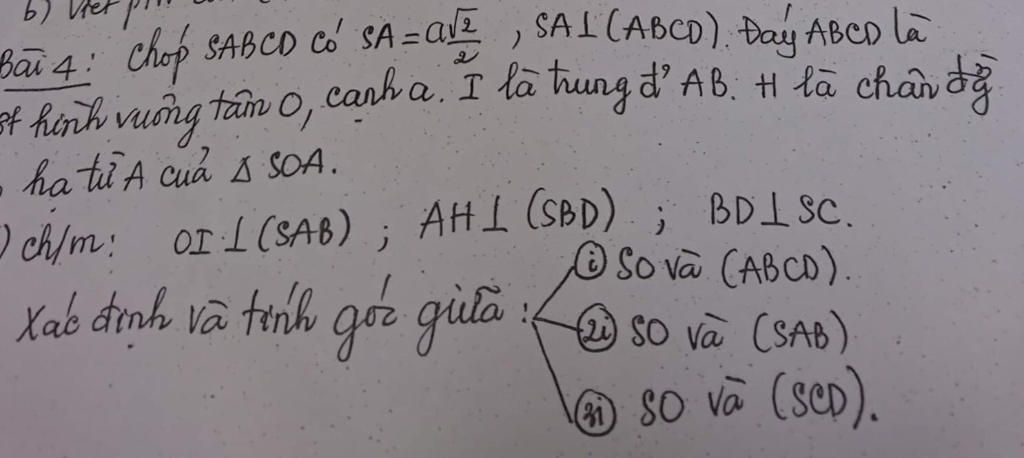 b) Viết
Bài 4: Chóp SABCD có SA = a√2/2, SA⊥(ABCD). Đáy ABCD là
hình vuông tâm O, cạnh a. I là trung đ' AB. H là chân đg̀
hạ từ A của Δ SOA.
) ch/m: OI⊥(SAB) ; AH⊥(SBD) ; BD⊥SC.
i SO và (ABCD).
Xác định và tính góc giữa :
2i SO và (SAB)
3i SO và (SCD).